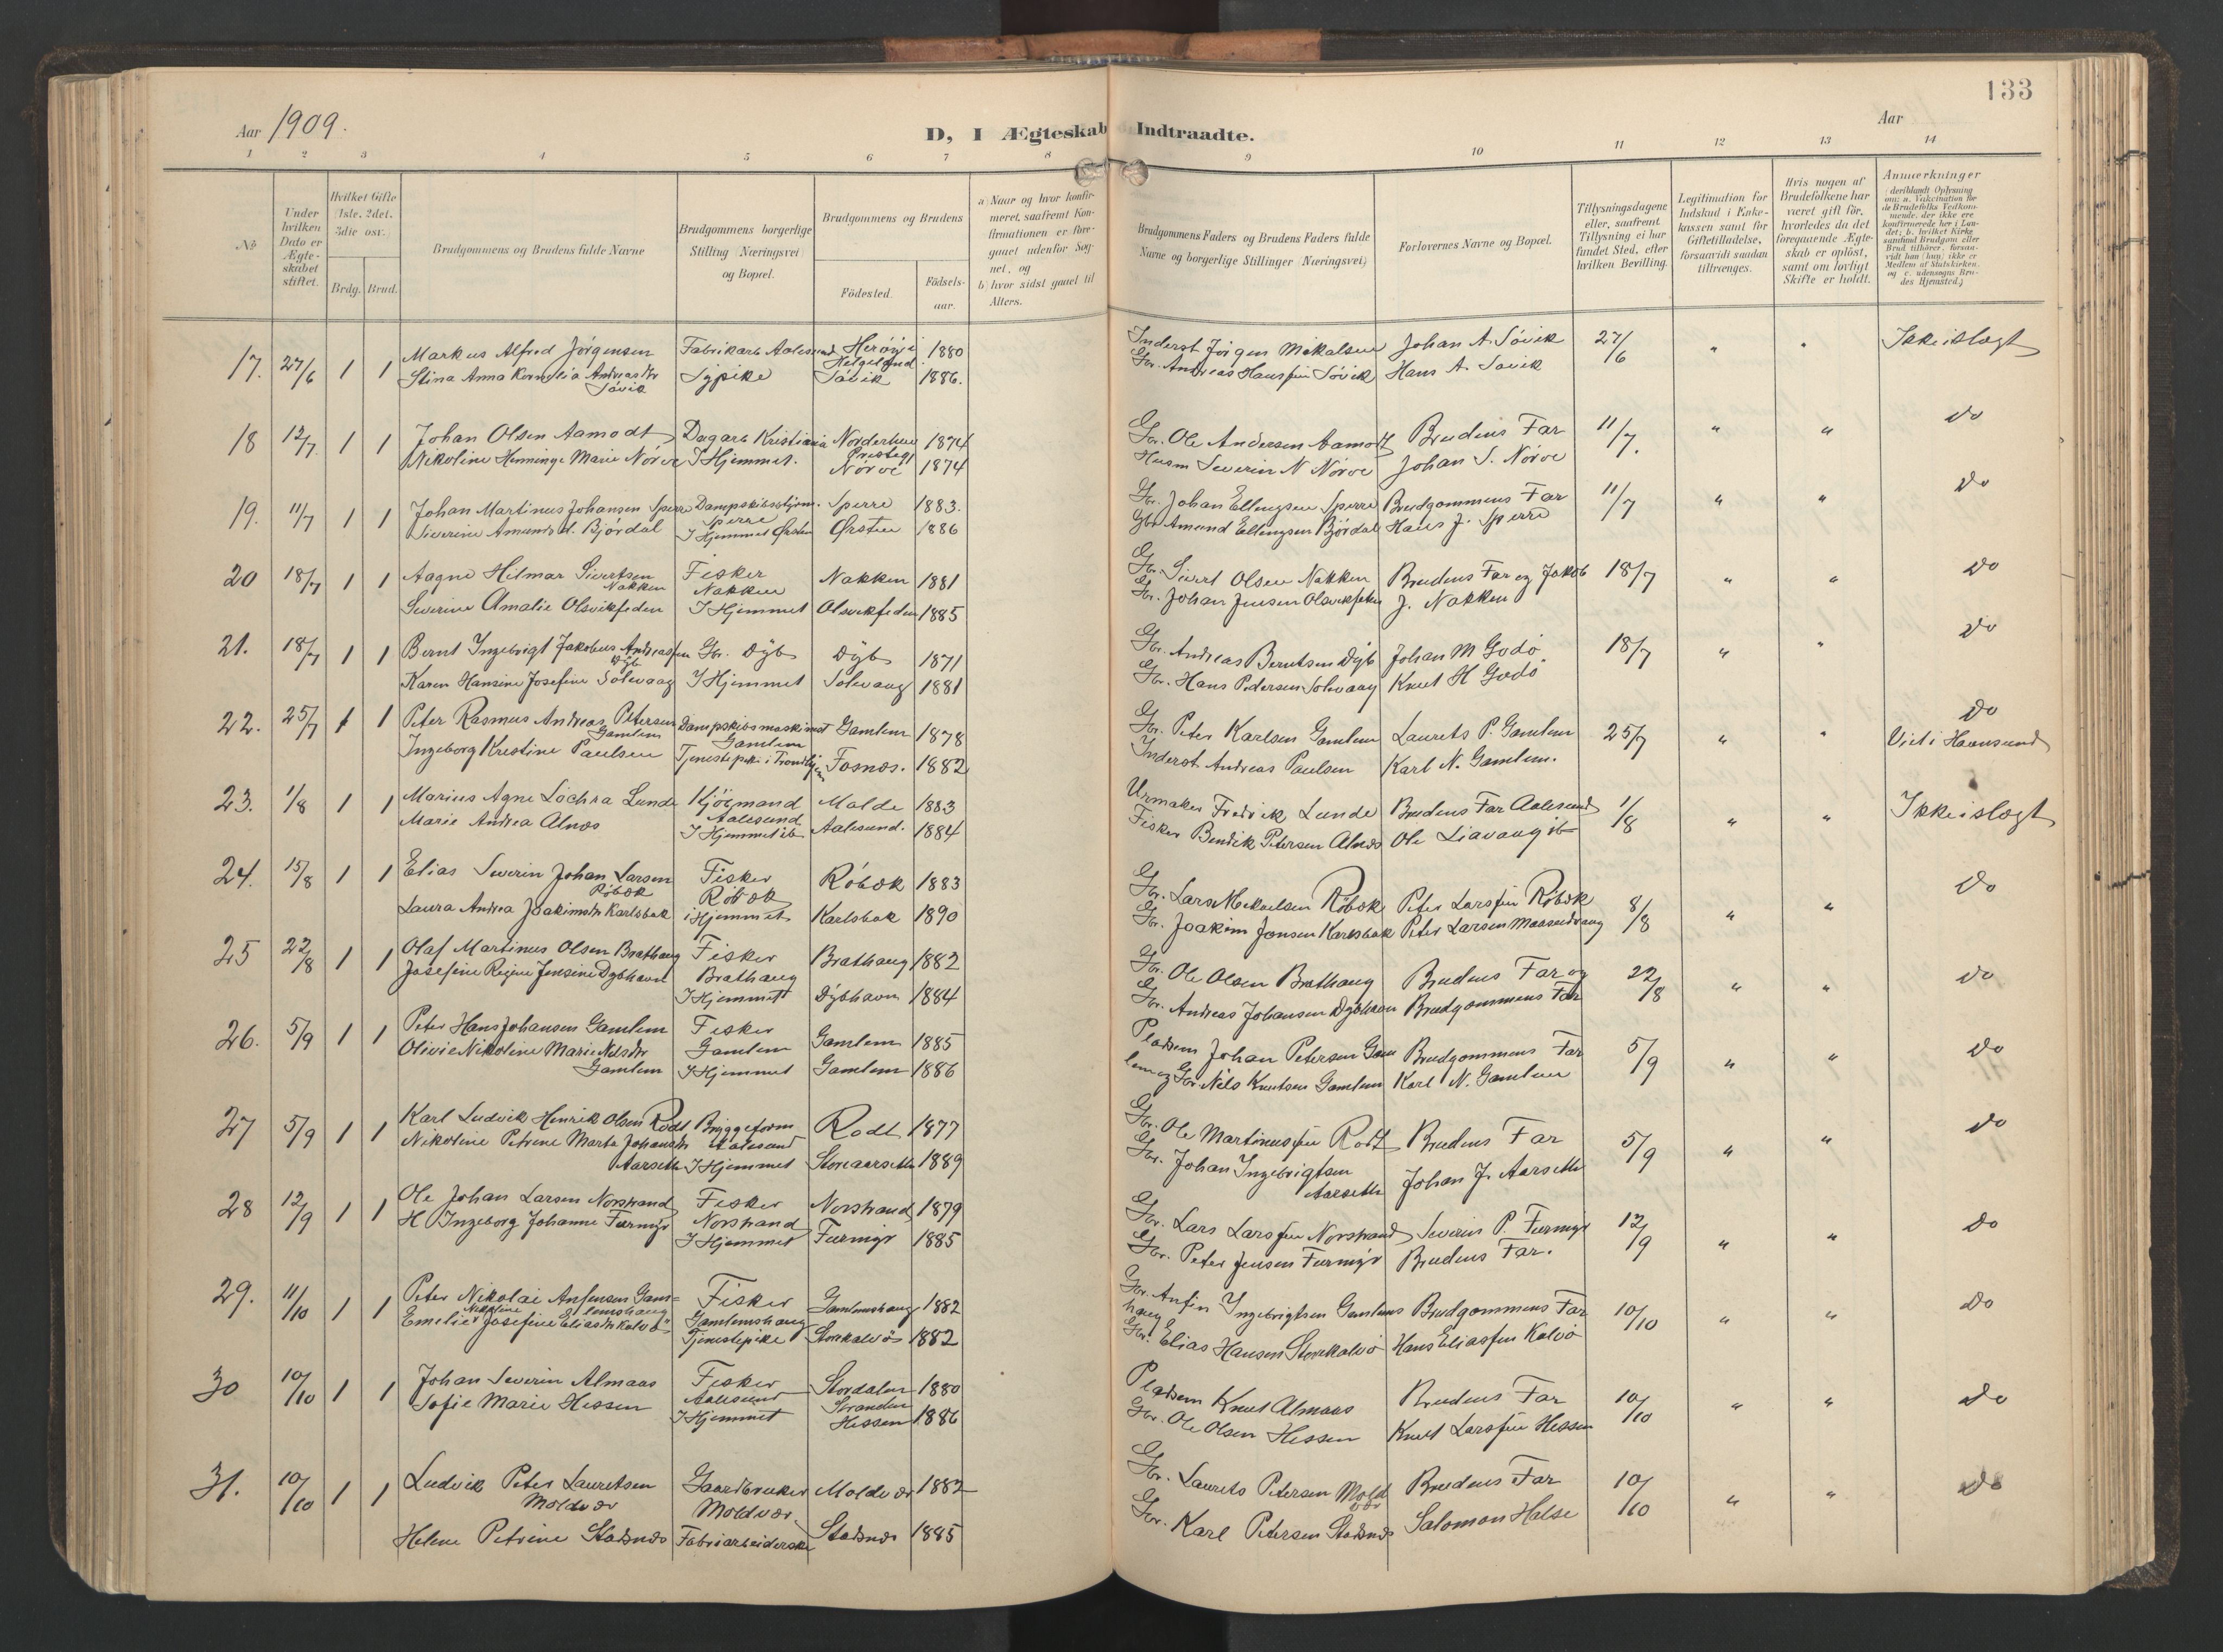 133
Aar 1909.
D, I Ægteskab Indtraadte.
Aar
1 2 3 4 5 6 7 8 9 10 11 12 13 14
No
Under hvilken Dato er Ægteskabet stiftet.
Hvilket Gifte (1ste, 2det, 3die osv.)
Brdg. Brud.
Brudgommens og Brudens fulde Navne
Brudgommens borgerlige Stilling (Næringsvei) og Bopæl.
Brudgommens og Brudens
Födested.
Födsels-aar.
a) Naar og hvor konfirmeret, saafremt Konfirmationen er foregaaet udenfor Sognet, og
b) hvor sidst gaaet til Alters.
Brudgommens Faders og Brudens Faders fulde Navne og borgerlige Stillinger (Næringsvei)
Forlovernes Navne og Bopæl.
Tillysningsdagene eller, saafremt Tillysning ei har fundet Sted, efter hvilken Bevilling.
Legitimation for Indskud i Enkekassen samt for Giftetilladelse, forsaavidt saadan tiltrænges.
Hvis nogen af Brudefolkene har været gift för, hvorledes da det foregaaende Ægteskab er oplöst, samt om lovligt Skifte er holdt.
Anmærkninger
(deriblandt Oplysning om: a. Vakcination for de Brudefolks Vedkommende, der ikke ere konfirmerede her i Landet; b. hvilket Kirkesamfund Brudgom eller Brud tilhörer, forsaavidt han (hun) ikke er Medlem af Statskirken, og c. udensogns Brudes Hjemsted.)
17. 27/6 1 1 Markus Alfred Jörgensen Fabrikarb Aalesund Heröy i Helgeland 1880 Inderst Jörgen Mikalsen Johan A. Sövik 27/6 " " Ikke i slægt
Stina Anna Kornelia Andreasdtr Sövik Sypike Sövik 1886. Gbr. Andreas Hanssen Sövik Hans A. Sövik
18 12/7 1 1 Johan Olsen Aamodt Dagarb Kristiania Norderhov Prestegj 1874 Gbr. Ole Andersen Aamodt Brudens Far 11/7. " " Do
Nikoline Henninge Marie Nörve I Hjemmet. Nörve 1874 Husm Severin N Nörve Johan S. Nörve
19. 11/7 1 1 Johan Martinus Johansen Sperre Dampskibsstyrm. Sperre Sperre 1883. Gbr. Johan Ellingsen Sperre Brudgommens Far 11/7 " " Do
Siverine Amundsd. Björdal I Hjemmet Örsten Örsten 1886 Gbr Amund Ellingsen Björdal Hans J. Sperre
20 18/7 1 1 Aagne Hilmar Sivertsen Nakken Fisker Nakken Nakken 1881 Gbr. Sivert Olsen Nakken Brudens Far og Jakob 18/7 " " Do
Severine Amalie Olsvikfeden I Hjemmet Olsvikfeden 1885 Gbr. Johan Jensen Olsvikfeden J. Nakken
21. 18/7 1 1 Bernt Ingebrigt Jakobus Andreassen Dyb Gbr. Dyb Dyb 1871 Gbr. Andreas Berntsen Dyb Johan M Godö 18/7 " " Do
Karen Hansine Josefine Solevaag I Hjemmet Solevaag 1881 Gbr. Hans Pedersen Solevaag Knut H Godö
22. 25/7 1 1 Peter Rasmus Andreas Petersen Gamlem Dampskibsmaskinist Gamlem Gamlem 1878 Gbr. Peter Karlsen Gamlem Laurits P. Gamlem 25/7 " " Do
Ingeborg Kristine Paulsen Tjenestepike i Trondhjem Fosnæs. 1882 Inderst Andreas Paulsen Karl N. Gamlem. Viet i Haansund
23. 1/8 1 1 Marius Agne Lochra Lunde Kjögmand Aalesund Molde 1883 Urmaker Fredrik Lunde Brudens Far Aalesund 1/8 " " Ikke i slægt
Marie Andrea Alnæs I Hjemmet ib Aalesund. 1884 Fisker Bendik Petersen Alnæs Ole Liavaag ib
24. 15/8 1 1 Elias Severin Johan Larsen Röbæk Fisker Röbæk Röbæk 1883 Gbr. Lars Mekaelsen Röbæk Peter Larssen Röbæk 8/8 " " Do
Laura Andrea Joakimsdtr Karlsbak i Hjemmet Karlsbak 1890 Gbr. Joakim Jonsen Karlsbak Peter Larsen
25 22/8 1 1 Olaf Martinus Olsen Brathaug Fisker Brathaug Brathaug 1882 Gbr. Ole Olsen Brathaug Brudens Far og 22/8 " " Do
Josefine Regine Jensine Dybhavn I Hjemmet Dybhavn 1884 Gbr. Andreas Johansen Dybhavn Brudgommens Far
26. 5/9 1 1 Peter Hans Johansen Gamlem Fisker Gamlem Gamlem 1885 Pladsem Johan Petersen Gam Brudgommens Far 5/9 " " Do
Olivie Nikoline Marie Nilsdtr Gamlem I Hjemmet Gamlem 1886 lem og Gbr Nils Knutsen Gamlem Karl N. Gamlem
27 5/9 1 1 Karl Ludvik Henrik Olsen Rodt Bryggeform Aalesund Rodt 1877 Gbr. Ole Martinussen Rodt Brudens Far 5/9 " " Do
Nikoline Petrine Marta Johansdtr Aarseth I Hjemmet Storeaarseth 1889 Gbr. Johan Ingebrigtsen Aarseth Johan J. Aarseth
28 12/9 1 1 Ole Johan Larsen Norstrand Fisker Norstrand Norstrand 1879 Gbr. Lars Larssen Norstrand Severin P. Furmyr 12/9 " " Do
H Ingeborg Johanne Furmyr I Hjemmet Furmyr 1885 Gbr. Peter Jensen Furmyr Brudens Far.
29. 11/10 1 1 Peter Nikolai Ansensen Gam= lemshaug Fisker Gamlemshaug Gamlemshaug 1882 Gbr. Anfin Ingebrigtsen Gamlems haug Brudgommens Far 10/10 " " Do
Emelie Nikoline Josefine Eliasdtr Kalvö Tjenestepike Storekalvö 1882 Gbr. Elias Hansen Storekalvö Hans Eliassen Kalvö
30 10/10 1 1 Johan Severin Almaas Fisker Aalesund Stordalen Stranden 1880 Pladsem Knut Almaas Brudens Far 10/10 " " Do
Sofie Marie Hessen I Hjemmet Hessen 1886 Gbr. Ole Olsen Hessen Knut Larssen Hessen
31. 10/10 1 1 Ludvik Peter Lauritsen Moldvær Gaardbruker Moldvær. Moldvær 1882 Gbr. Laurits Petersen Moldvær Brudens Far 10/10 " " Do
Helene Petrine Stadsnæs Fabriarbeiderske Stadsnæs 1885 Gbr. Karl Petersen Stadsnæs Salomon Halse